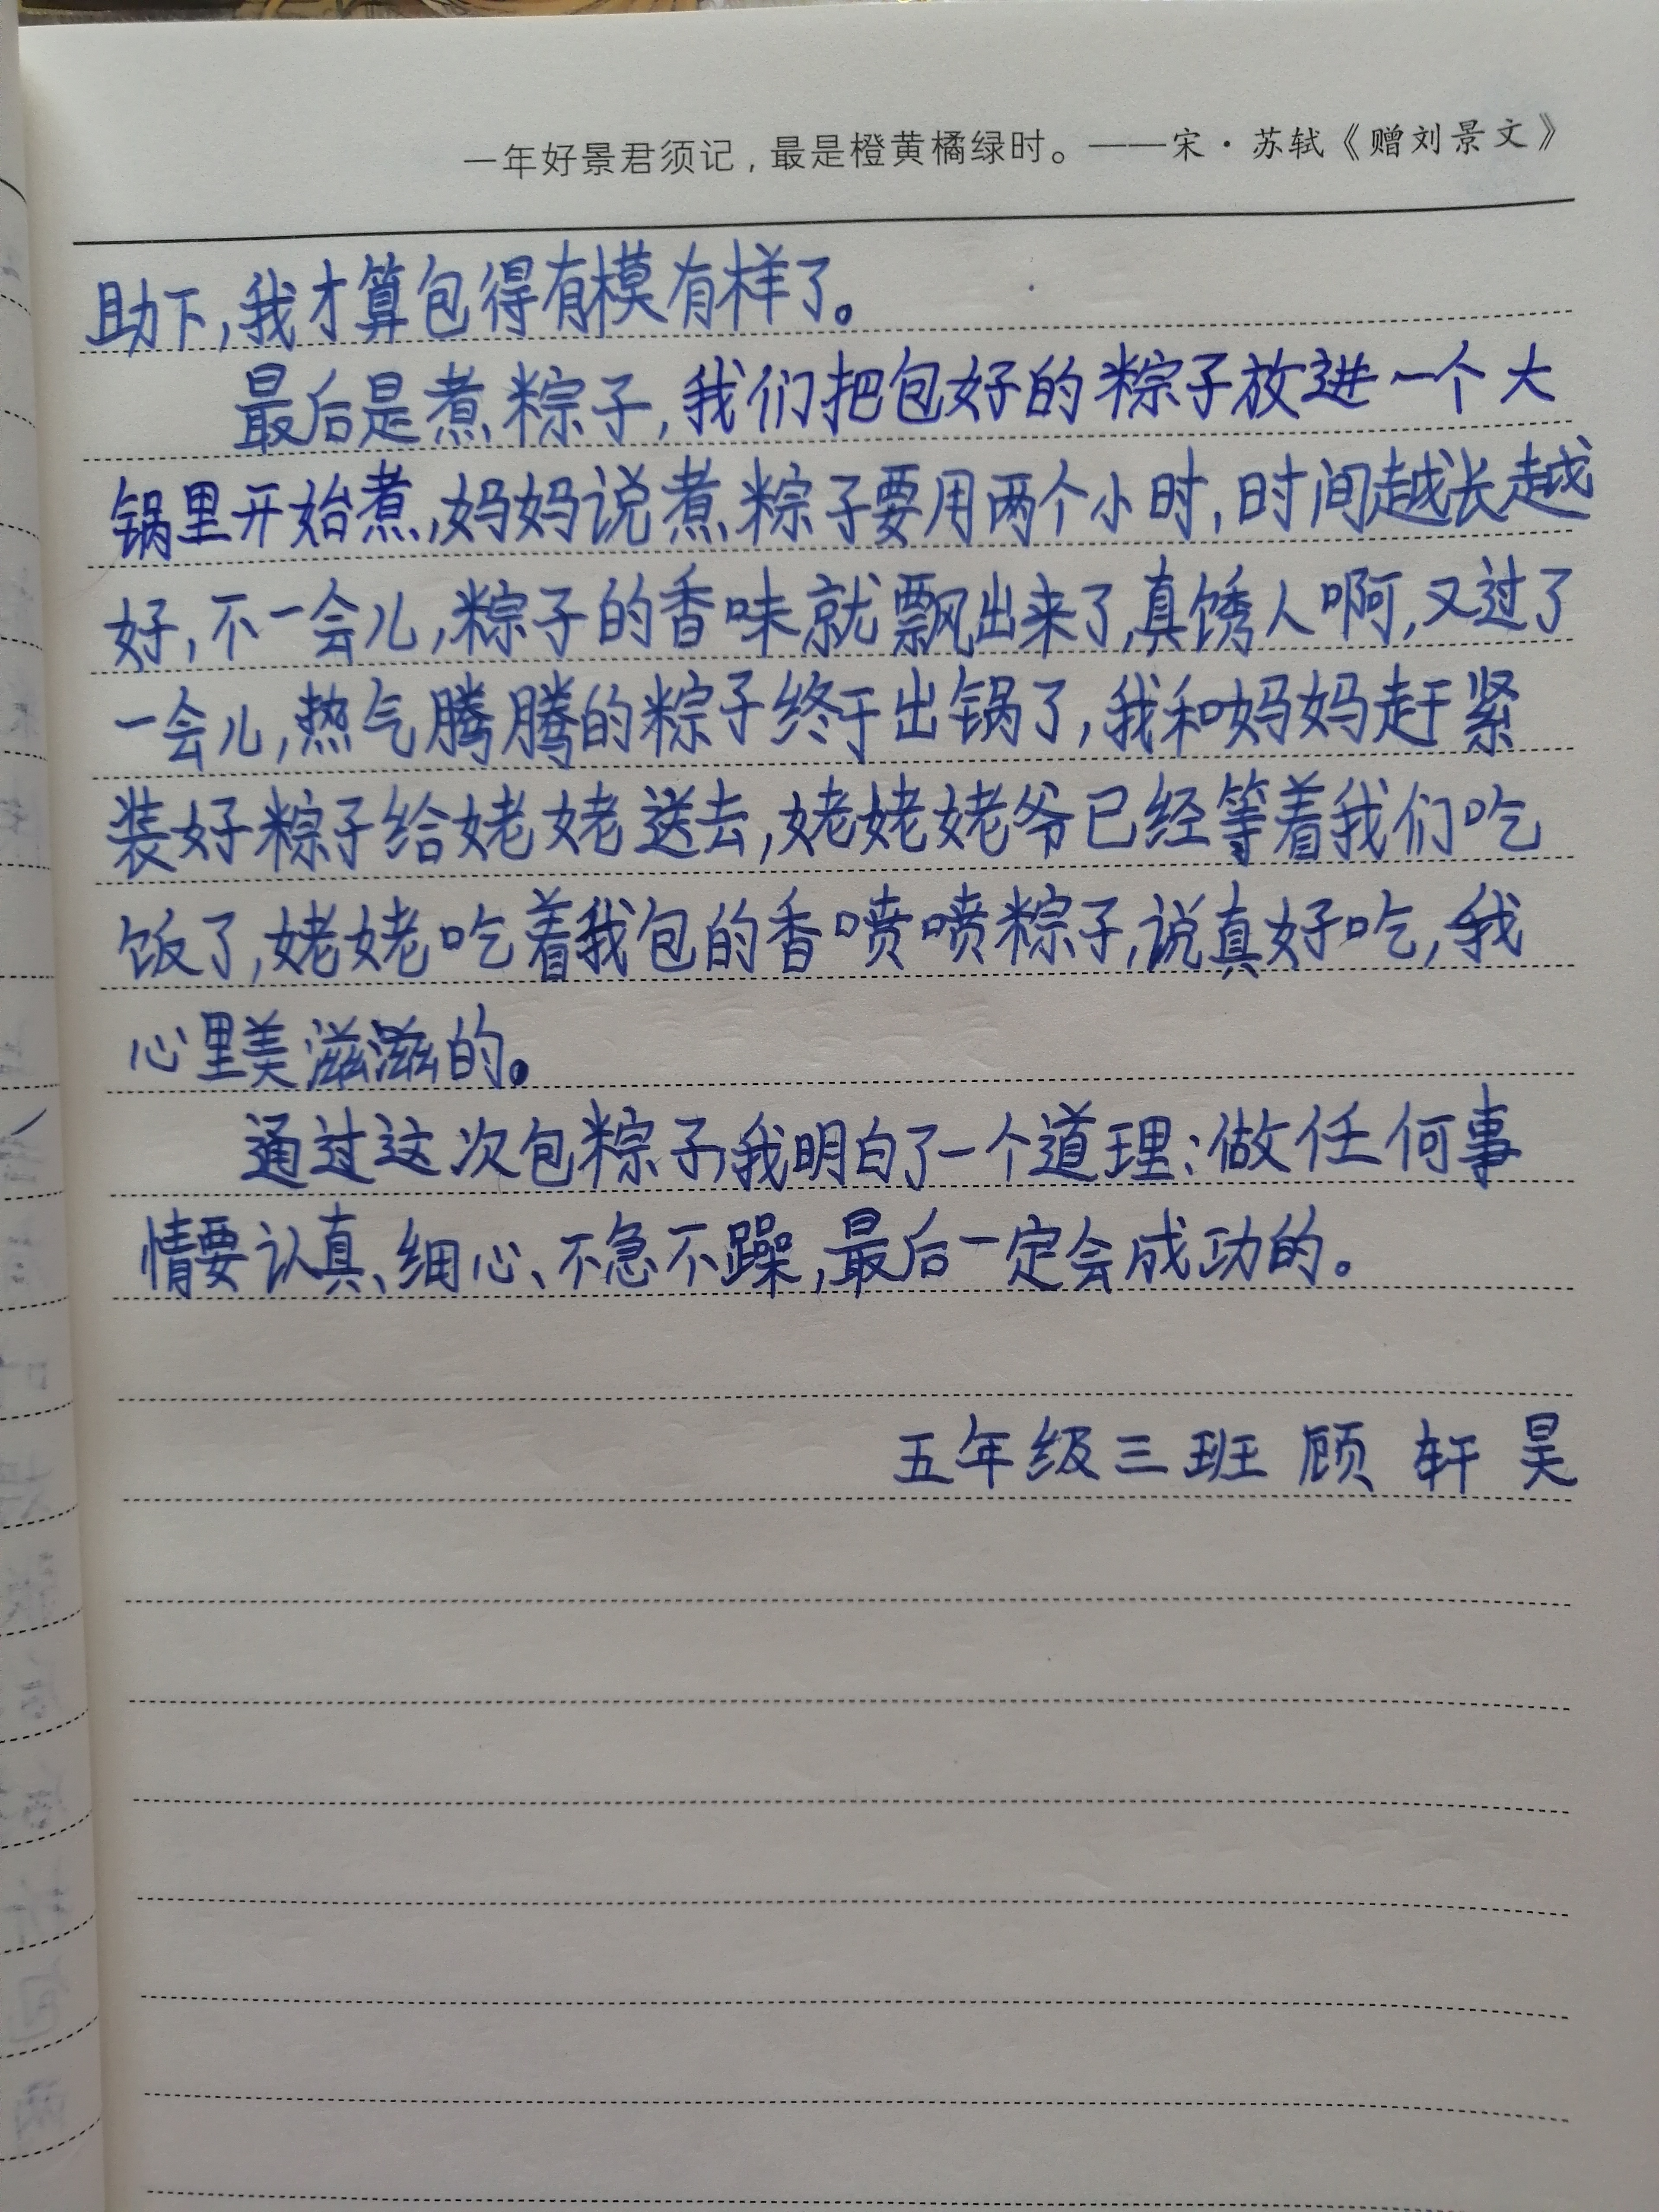 一年好景君须记，最是橙黄橘绿时。——宋·苏轼《赠刘景文》
助下,我才算包得有模有样了。
最后是煮粽子,我们把包好的粽子放进一个大
锅里开始煮,妈妈说煮粽子要用两个小时,时间越长越
好,不一会儿,粽子的香味就飘出来了,真馋人啊,又过了
一会儿,热气腾腾的粽子终于出锅了,我和妈妈赶紧
装好粽子给姥姥送去,姥姥姥爷已经等着我们吃
饭了,姥姥吃着我包的香喷喷粽子,说真好吃,我
心里美滋滋的。
通过这次包粽子,我明白了一个道理:做任何事
情要认真、细心、不急不躁,最后一定会成功的。
五年级三班 顾轩昊